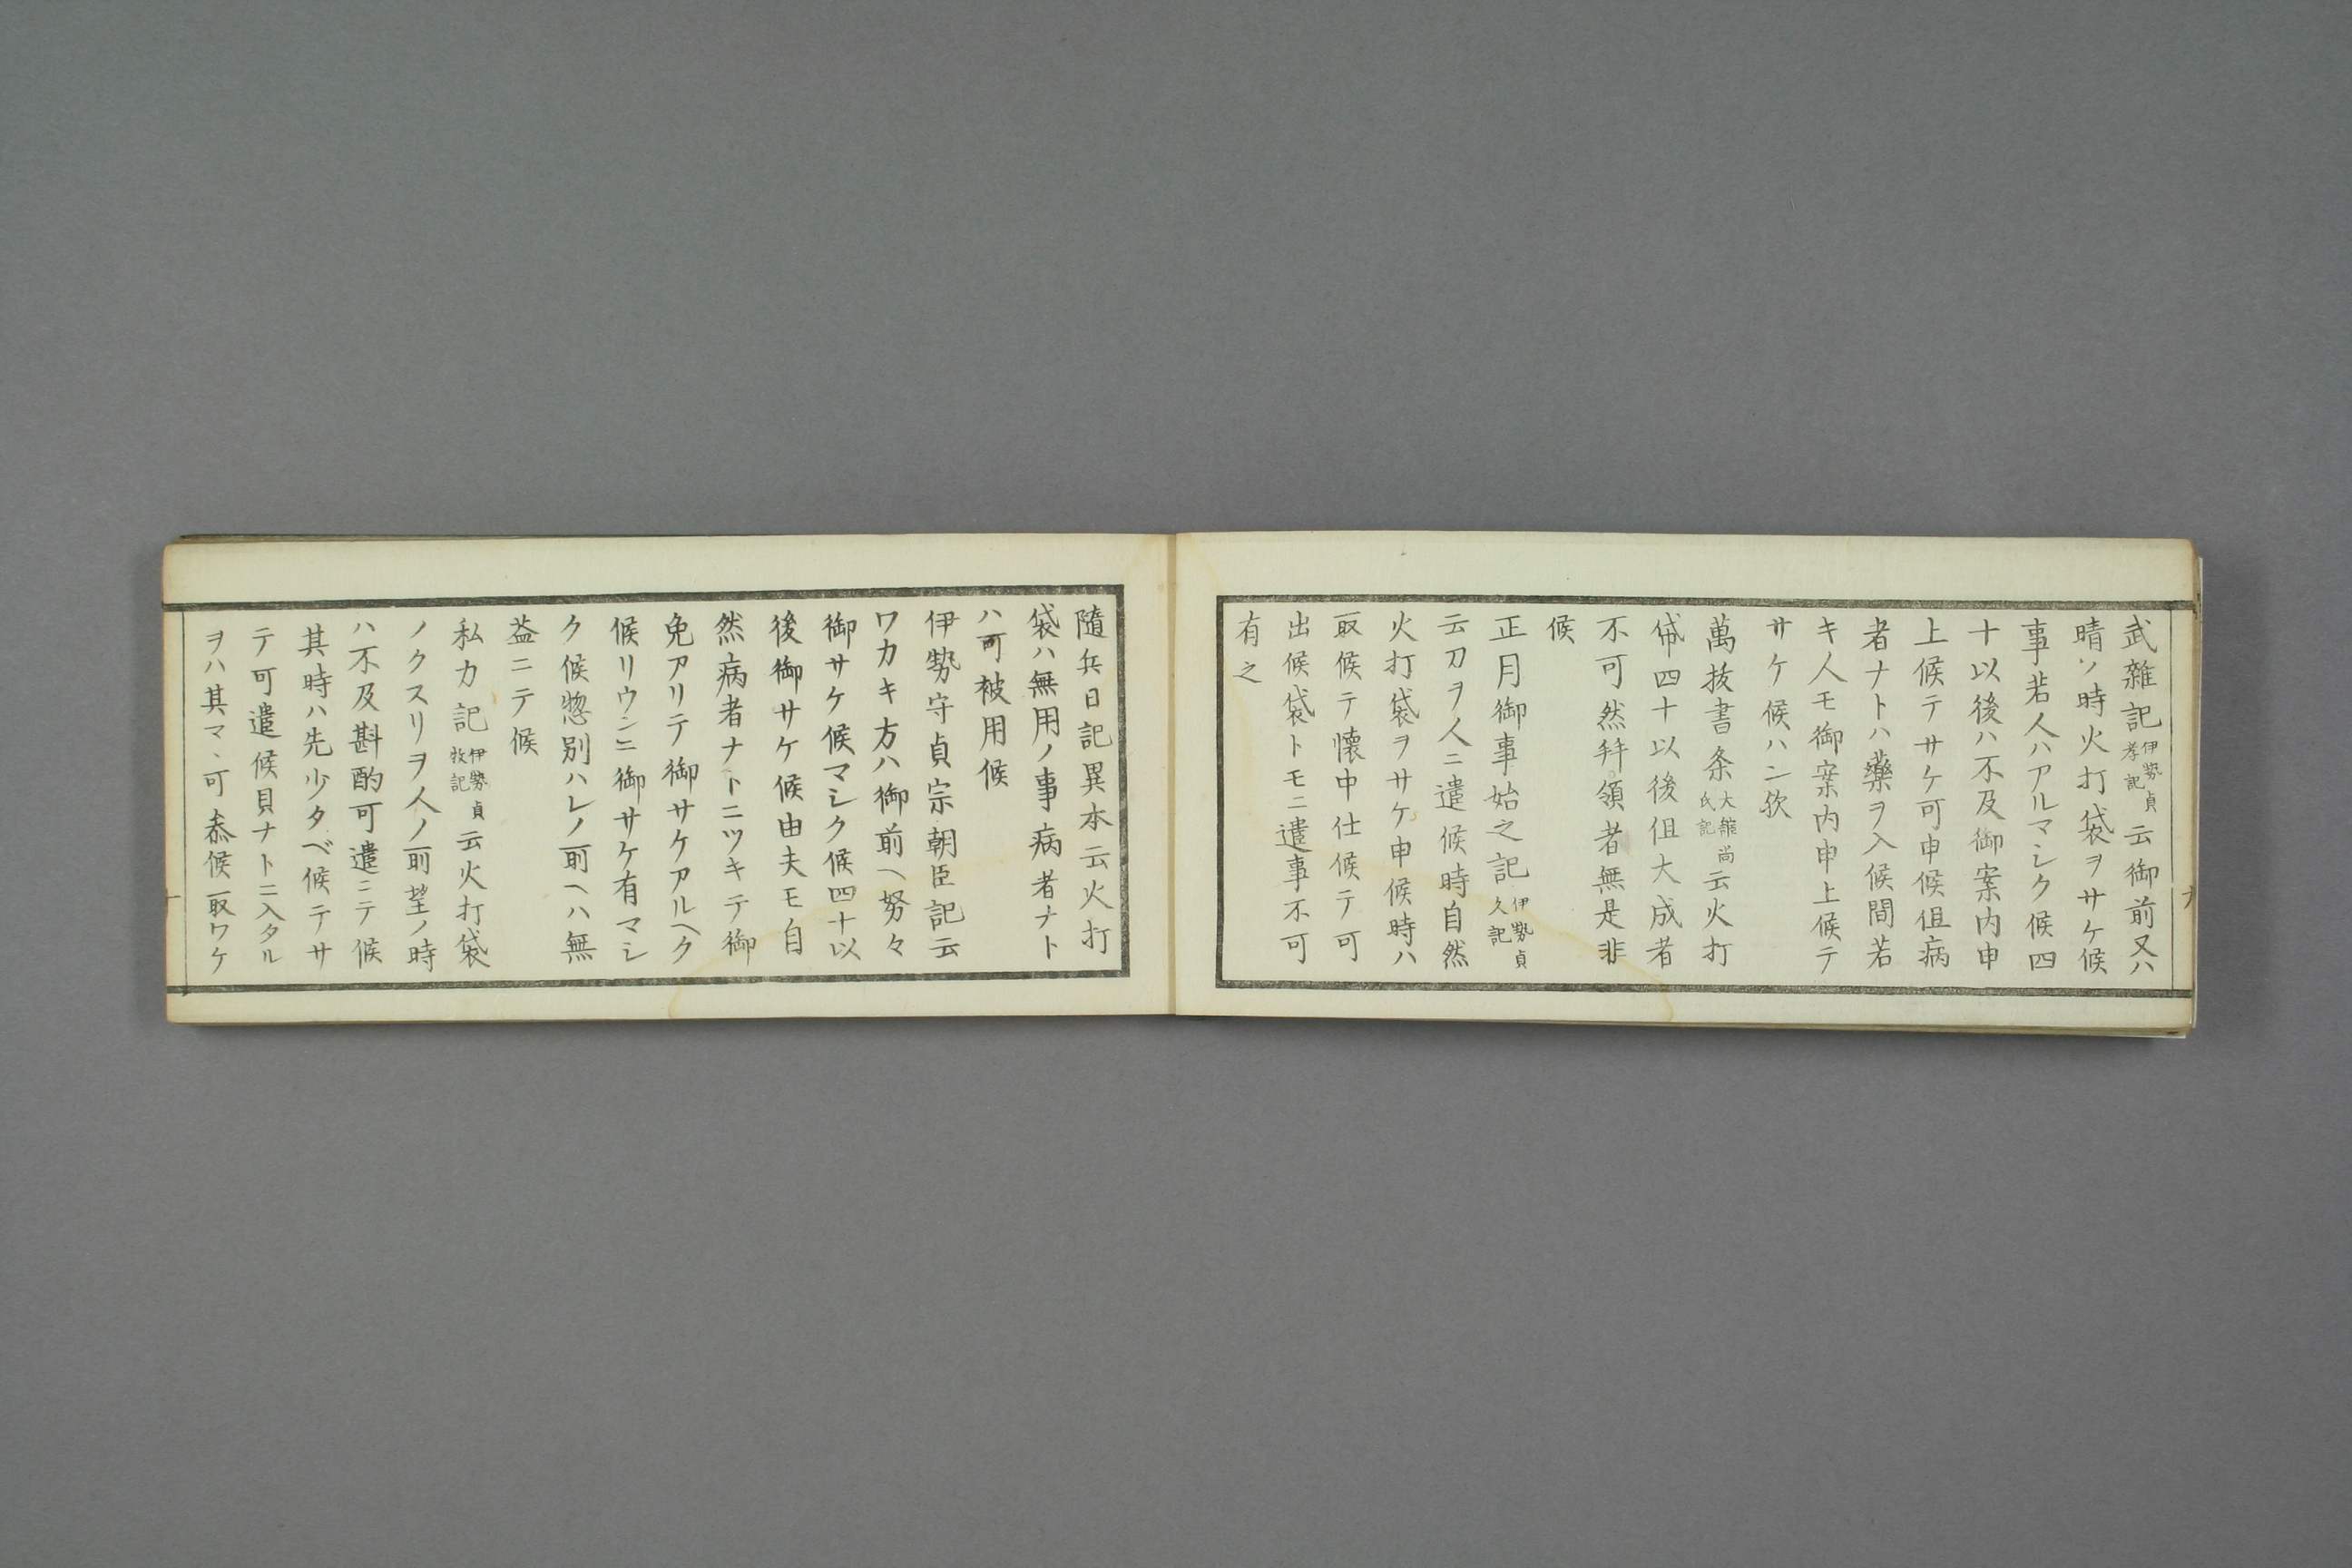 武雜記伊勢貞孝記云御前又ハ
晴ノ時火打袋ヲサケ候
事若人ハアルマシク候四
十以後ハ不及御案内申
上候テサケ可申候但病
者ナトハ藥ヲ入候間若
キ人モ御案内申上候テ
サケ候ハン欤
萬抜書条大舘尚氏記云火打
帒四十以後但大成者
不可然拜領者無是非
候
正月御事始之記伊勢貞久記
云刀ヲ人ニ遣候時自然
火打袋ヲサケ申候時ハ
取候テ懐中仕候テ可
出候袋トモニ遣事不可
有之
隨兵日記異本云火打
袋ハ無用ノ事病者ナト
ハ可被用候
伊勢守貞宗朝臣記云
ワカキ方ハ御前ヘ努々
御サケ候マシク候四十以
後御サケ候由夫モ自
然病者ナトニツキテ御
免アリテ御サケアルヘク
候リウンニ御サケ有マシ
ク候惣別ハレノ所ヘハ無
益ニテ候
私カ記伊勢貞牧記云火打袋
ノクスリヲ人ノ所望ノ時
ハ不及斟酌可遣ニテ候
其時ハ先少タベ候テサ
テ可遣候貝ナトニ入タル
ヲハ其マヽ可恭候取ワケ